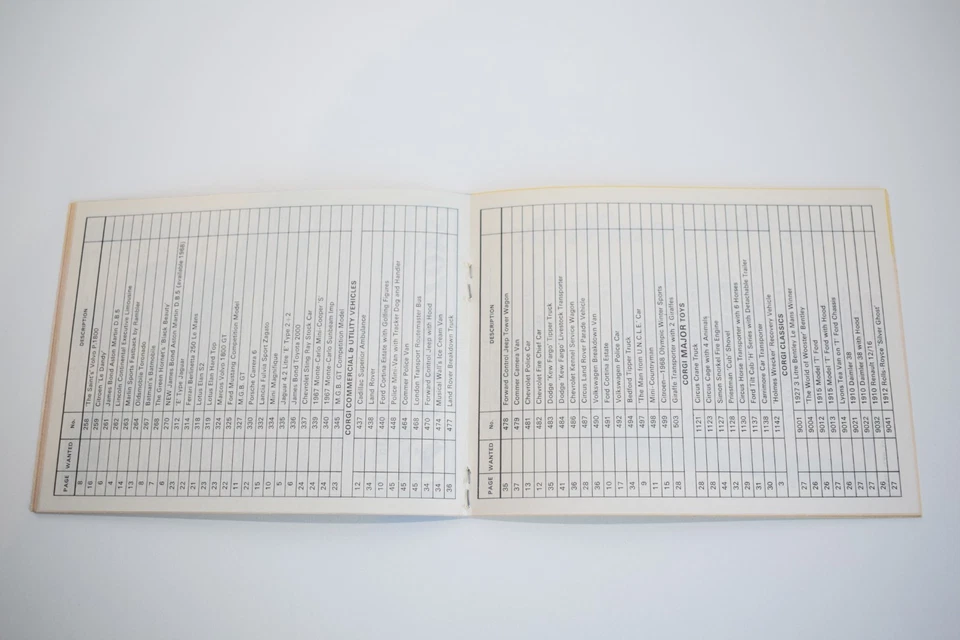 PAGE WANTED No. DESCRIPTION
8 258 'The Saint's' Volvo P.1800
16 259 Citroen 'Le Dandy'
6 261 James Bond Aston Martin D.B.5
4 262 Lincoln Continental Executive Limousine
14 263 Marlin Sports Fastback by Rambler
13 264 Oldsmobile Toronado
8 267 Batman's Batmobile
7 268 The Green Hornet's, 'Black Beauty'
6 270 NEW James Bond Aston Martin D.B.5 (available 1968)
23 312 'E' type Jaguar
22 314 Ferrari Berlinetta 250 Le Mans
21 318 Lotus Elan S2
23 319 Lotus Elan Hard Top
23 324 Marcos Volvo 1800 GT
22 325 Ford Mustang Competition Model
11 327 M.G.B. GT
22 330 Porsche Carrera 6
15 332 Lancia Fulvia Sport Zagato
10 334 Mini Magnifique
5 335 Jaguar 4.2 Litre 'E' Type 2+2
6 336 James Bond Toyota 2000
24 337 Chevrolet Sting Ray Stock Car
24 339 1967 Monte-Carlo Mini-Cooper 'S'
24 340 1967 Monte-Carlo Sunbeam Imp
23 345 M.G.B. GT Competition Model
CORGI COMMERCIAL & UTILITY VEHICLES
12 437 Cadillac Superior Ambulance
34 438 Land Rover
10 440 Ford Cortina Estate with Golfing Figures
45 448 Police Mini-Van with Tracker Dog and Handler
45 464 Commer Police Van
45 468 London Transport Routemaster Bus
34 470 Forward Control Jeep with Hood
34 474 Musical Wall's Ice Cream Van
36 477 Land Rover Breakdown Truck
PAGE WANTED No. DESCRIPTION
35 478 Forward Control Jeep Tower Wagon
37 479 Commer Camera Van
13 481 Chevrolet Police Car
12 482 Chevrolet Fire Chief Car
35 483 Dodge 'Kew Fargo' Tipper Truck
41 484 Dodge 'Kew Fargo' Livestock Transporter
36 486 Chevrolet Kennel Service Wagon
28 487 Circus Land Rover Parade Vehicle
36 490 Volkswagen Breakdown Van
10 491 Ford Cortina Estate
17 492 Volkswagen Police Car
34 494 Bedford Tipper Truck
9 497 'The Man from U.N.C.L.E.' Car
11 498 Mini-Countryman
15 499 Citroen—1968 Olympic Winter Sports
28 503 Giraffe Transporter with 2 Giraffes
CORGI MAJOR TOYS
28 1121 Circus Crane Truck
28 1123 Circus Cage with 4 Animals
44 1127 Simon Snorkel Fire Engine
32 1128 Priestman 'Cub' Shovel
29 1130 Circus Horse Transporter with 6 Horses
31 1137 Ford Tilt Cab 'H' Series with Detachable Trailer
30 1138 Carrimore Car Transporter
3 1142 Holmes Wrecker Recovery Vehicle
CORGI CLASSICS
27 9001 1927 3 Litre Bentley Le Mans Winner
26 9004 'The World of Wooster' Bentley
26 9012 1915 Model 'T' Ford
27 9013 1915 Model 'T' Ford with Hood
26 9014 Lyons Tea Van on 'T' Ford Chassis
27 9021 1910 Daimler 38
27 9022 1910 Daimler 38 with Hood
27 9031 1910 Renault 12/16
26 9032 1910 Renault 12/16
27 9041 1912 Rolls-Royce 'Silver Ghost'